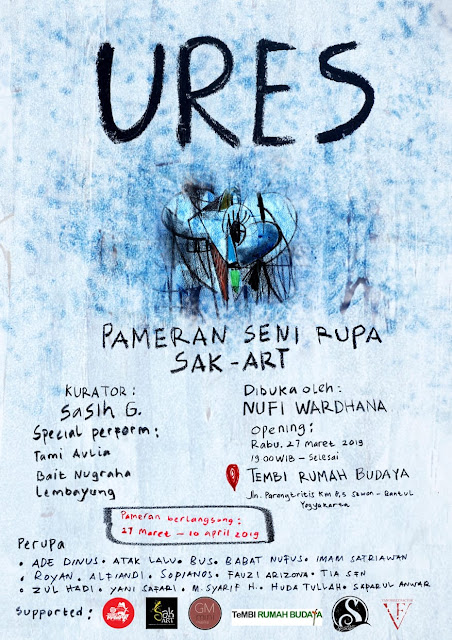 URES
PAMERAN SENI RUPA
SAK-ART
KURATOR :
Sasih G.
Special perform :
Tami Aulia
Bait Nugraha
Lembayung
Dibuka oleh :
NUFI WARDHANA
Opening :
Rabu, 27 Maret 2019
19.00 WIB - Selesai
TEMBI RUMAH BUDAYA
Jln. Parangtritis Km 8,5 Sewon - Bantul
Yogyakarta
Pameran berlangsung :
27 Maret - 10 April 2019
Perupa
• ADE DINUS • ATAK LALU • BUS • BABAT NUFUS • IMAM SATRIAWAN
• ROYAN • ALFIANDI • SOPIANOS • FAUZI ARIZONA • TIA SEN
• ZUL HADI • YANI SAFARI • M. SYARIF H • HUDA TULLAH • SAPARUL ANWAR
Supported :
Sak
ART
GM
TeMBI RUMAH BUDAYA